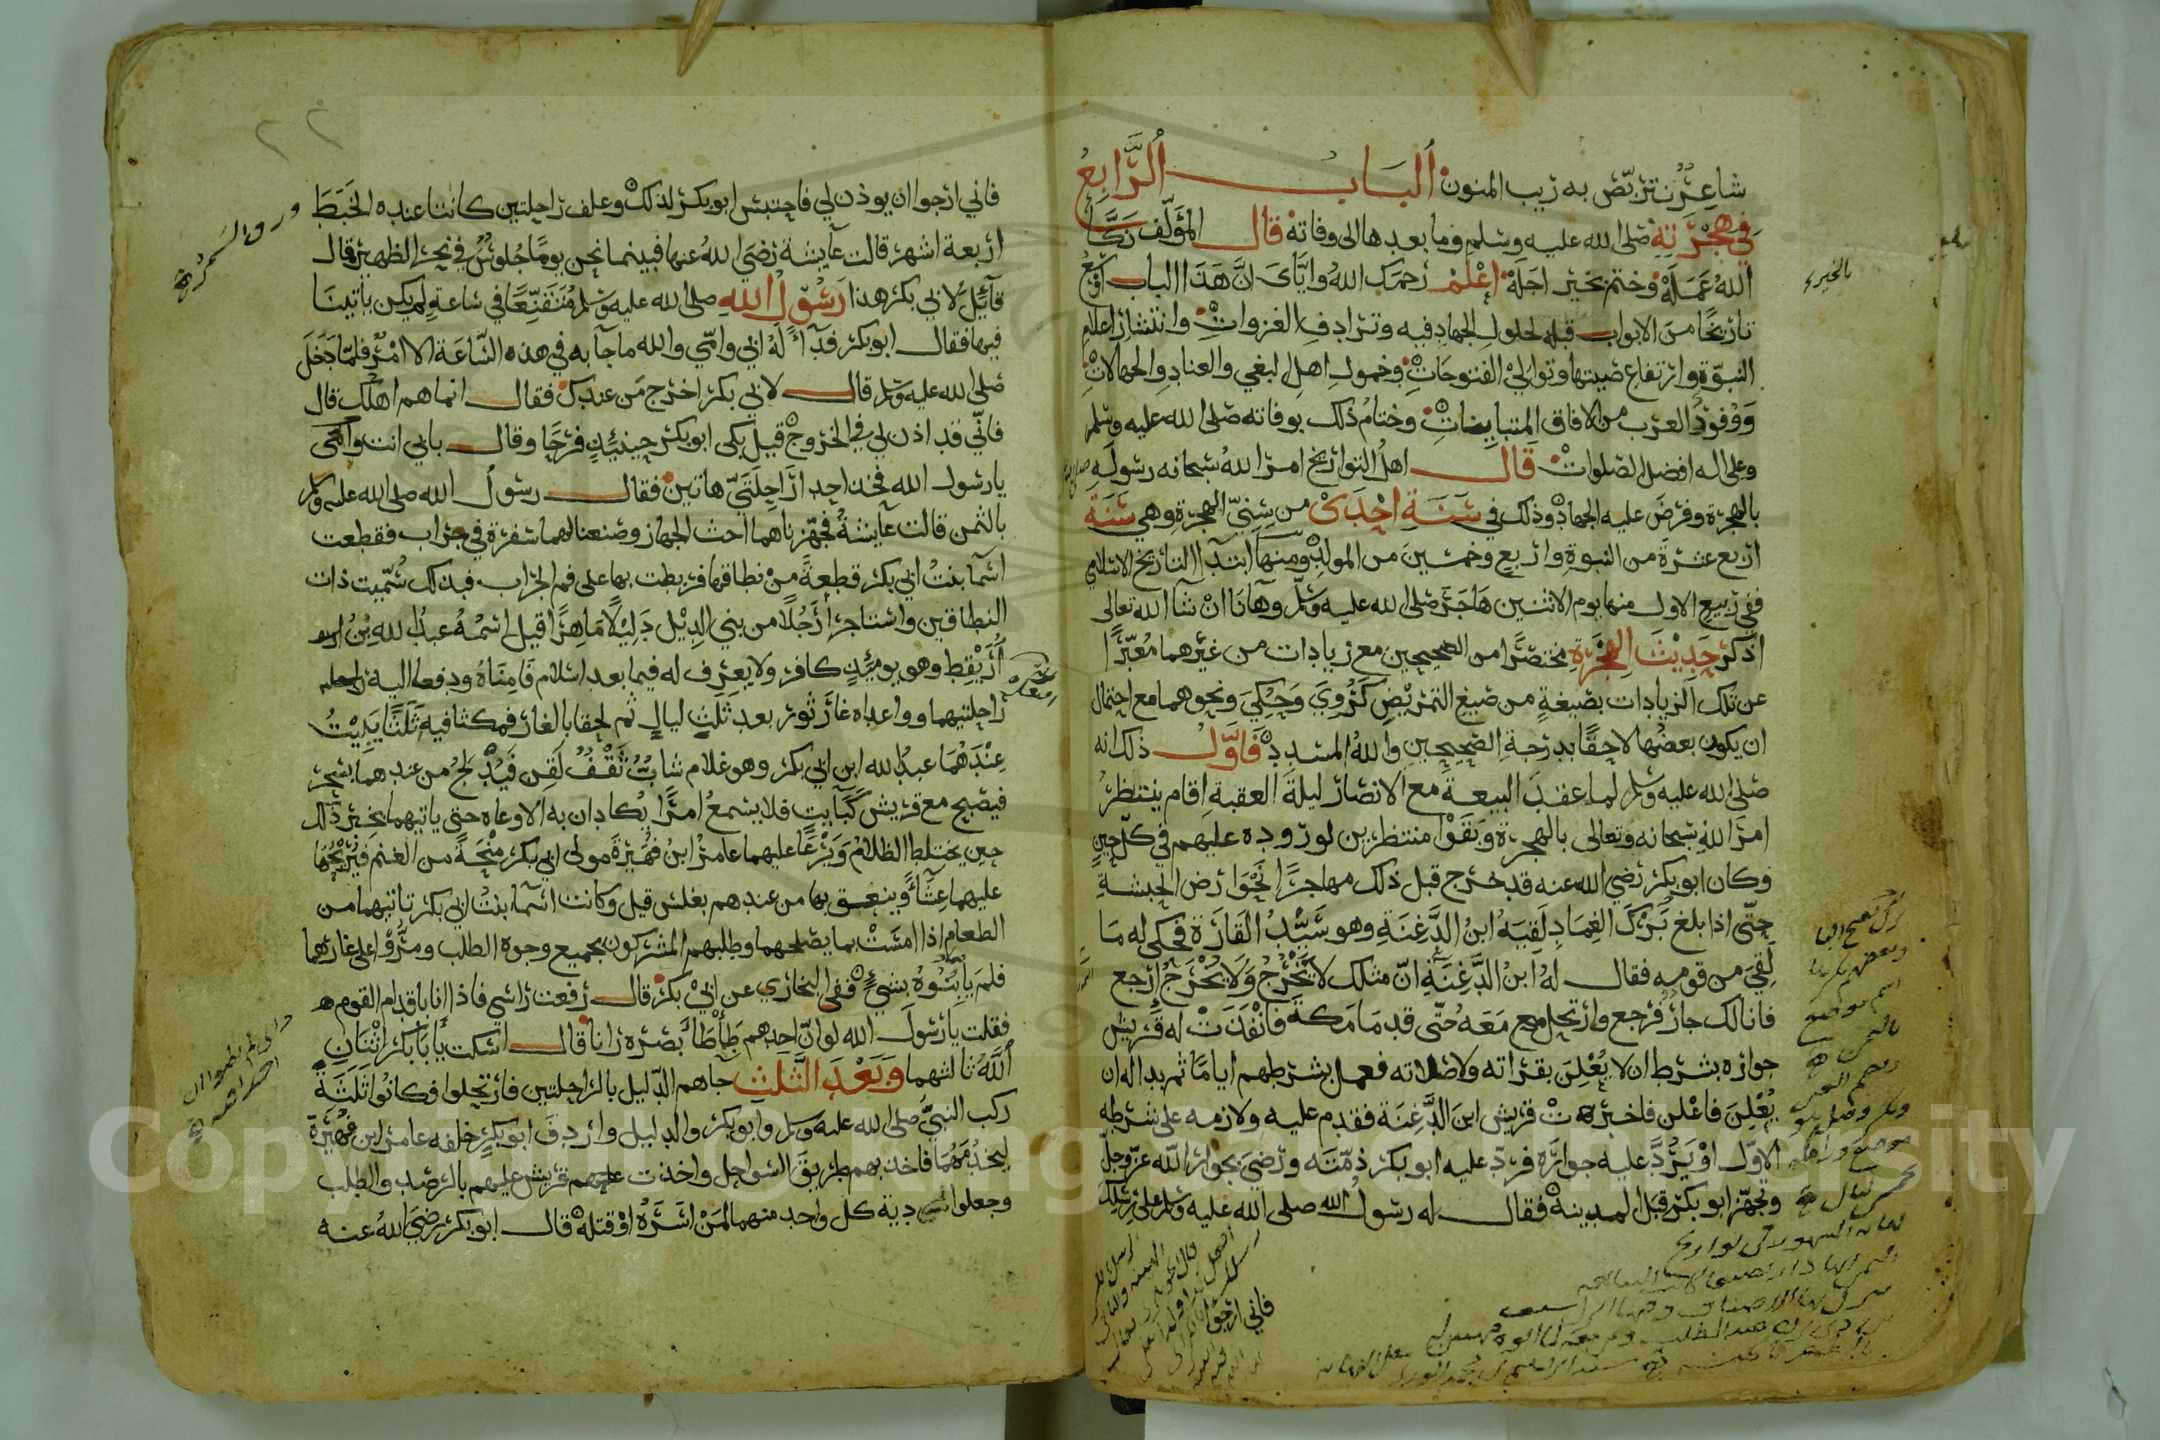 شاعر نتربص به ريب المنون الباب الرابع
في هجرته صلى الله عليه وسلم وما بعدها الى وفاته قال المؤلف زكا
الله عمله وختم بخير اجله اعلم رحمك الله واياى ان هذا الباب اوسع
تاريخا من الابواب قبله لحلول الجهاد فيه وترادف الغزوات وانتشار اعلام
النبوة وارتفاع صيتها وتوالي الفتوحات وخمول اهل البغي والعناد والجهالات
ووفود العرب من الافاق المتباينات وختام ذلك بوفاته صلى الله عليه وسلم
وعلى اله افضل الصلوات قال اهل التواريخ امر الله سبحانه رسوله
بالهجرة وفرض عليه الجهاد وذلك في سنة احدى من سني الهجرة وهي سنة
اربع عشرة من النبوة واربع وخمسين من المولد ومنها ابتدا التاريخ الاسلامي
ففي ربيع الاول منها يوم الاثنين هاجر صلى الله عليه وسلم وها انا ان شا الله تعالى
اذكر حديث الهجرة مختصرا من الصحيحين مع زيادات من غيرهما معبرا
عن تلك الزيادات بصيغة من صيغ التمريض كروي وحكي ونحوهما مع احتمال
ان يكون بعضها لاحقا بدرجة الصحيحين والله المسدد فاول ذلك انه
صلى الله عليه وسلم لما عقد البيعة مع الانصار ليلة العقبة اقام ينتظر
امر الله سبحانه وتعالى بالهجرة وبقوا منتظرين لوروده عليهم في كل حين
وكان ابو بكر رضي الله عنه قد خرج قبل ذلك مهاجرا نحو ارض الحبشة
حتى اذا بلغ برك الغماد لقيه ابن الدغنة وهو سيد القارة فحكى له ما
لقي من قومه فقال له ابن الدغنة ان مثلك لا يخرج ولا يخرج ارجع
فانا لك جار فرجع وارتحل معه حتى قدما مكة فانفذت له قريش
جواره بشرط ان لا يعلن بقراته ولا صلاته فعمل بشرطهم اياما ثم بدا له ان
يعلن فاعلن فاخبرت قريش ابن الدغنة فقدم عليه ولازمه على شرطه
الاول او يرد عليه جواره فرد عليه ابو بكر ذمته ورضي بجوار الله عز وجل
وتجهز ابو بكر قبل المدينة فقال له رسول الله صلى الله عليه وسلم على رسلك
فاني ارجوا
فاني ارجوا ان يوذن لي فاحتبس ابو بكر لذلك وعلف راحلتين كانتا عنده الخبط
ورق السمر
اربعة اشهر قالت عايشة رضي الله عنها فبينما نحن يوما جلوس في نحر الظهيرة قال
قايل لابي بكر هذا رسول الله صلى الله عليه وسلم متقنعا في ساعة لم يكن ياتينا
فيها فقال ابو بكر فدآء له ابي وامي والله ما جآ به في هذه الساعة الا امر فلما دخل
صلى الله عليه وسلم قال لابي بكر اخرج من عندك فقال انما هم اهلك قال
فاني قد اذن لي في الخروج قيل بكى ابو بكر حينئذ فرحا وقال بابي انت وامي
يا رسول الله فخذ احد راحلتي هاتين فقال رسول الله صلى الله عليه وسلم
بالثمن قالت عايشة فجهزناهما احث الجهاز وصنعنا لهما سفرة في جراب فقطعت
اسما بنت ابي بكر قطعة من نطاقها فربطت بها على فم الجراب فبذلك سميت ذات
النطاقين واستاجرا رجلا من بني الديل دليلا ماهرا قيل اسمه عبد الله بن
اريقط وهو يومئذ كافر ولا يعرف له فيما بعد اسلام فامناه ودفعا اليه
راحلتيهما وواعداه غار ثور بعد ثلث ليال ثم لحقا بالغار فمكثا فيه ثلثا يبيت
عندهما عبد الله ابن ابي بكر وهو غلام شاب ثقف لقن فيدلج من عندهما بسحر
فيصبح مع قريش كبايت فلا يسمع امرا يكادان به الا وعاه حتى ياتيهما بخبر ذلك
حين يختلط الظلام ويرعى عليهما عامر ابن فهيرة مولى ابي بكر منحة من الغنم فيريحها
عليهما عشآء وينعق بها من عندهم بغلس قيل وكانت اسما بنت ابي بكر تاتيهما من
الطعام اذا امست بما يصلحهما وطلبهم المشركون بجميع وجوه الطلب ومروا على غارهما
فلم يابهوه بشيء ففي البخاري عن ابي بكر قال رفعت راسي فاذا انا باقدام القوم
فقلت يا رسول الله لو ان احدهم طأطأ بصره رانا قال اسكت يا با بكر اثنان
الله ثالثهما وبعد الثلث جاهم الدليل بالراحلتين فارتحلوا فكانوا ثلثة
ركب النبي صلى الله عليه وسلم وابو بكر والدليل واردف ابو بكر خلفه عامر ابن فهيرة
ليخدمهما فاخذ بهم طريق السواحل واخذت عليهم قريش عليهم بالرصد والطلب
وجعلوا دية كل واحد منهما لمن اسره او قتله قال ابو بكر رضي الله عنه
Copyright © King Saud University